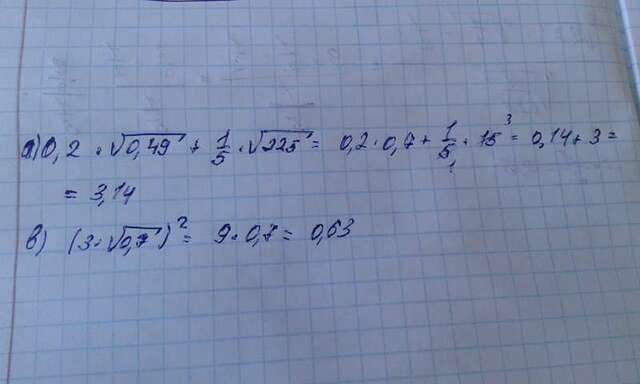 а) 0,2 · √0,49 + 1/5 · √225 = 0,2 · 0,7 + 1/5₁ · 15³ = 0,14 + 3 =
= 3,14
в) (3 · √0,7)² = 9 · 0,7 = 0,63